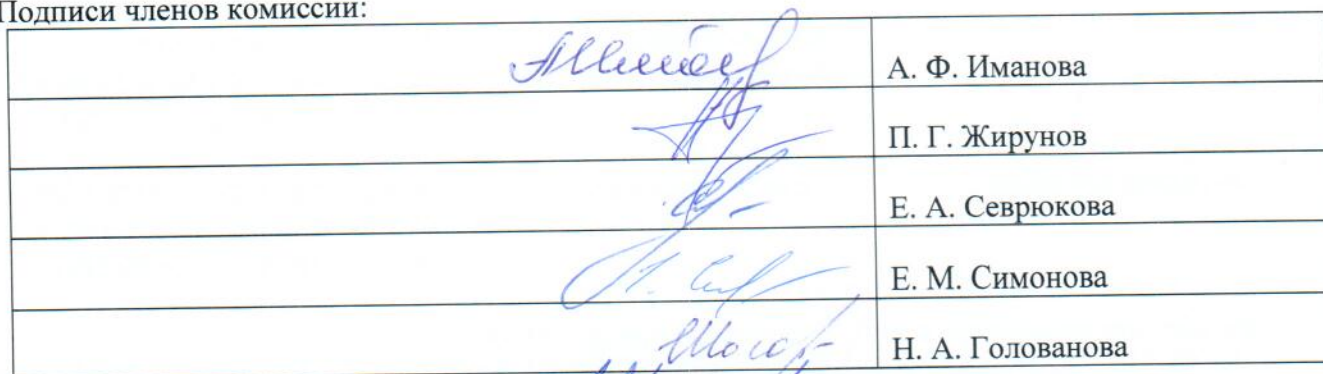 Подписи членов комиссии:
А. Ф. Иманова
П. Г. Жирунов
Е. А. Севрюкова
Е. М. Симонова
Н. А. Голованова